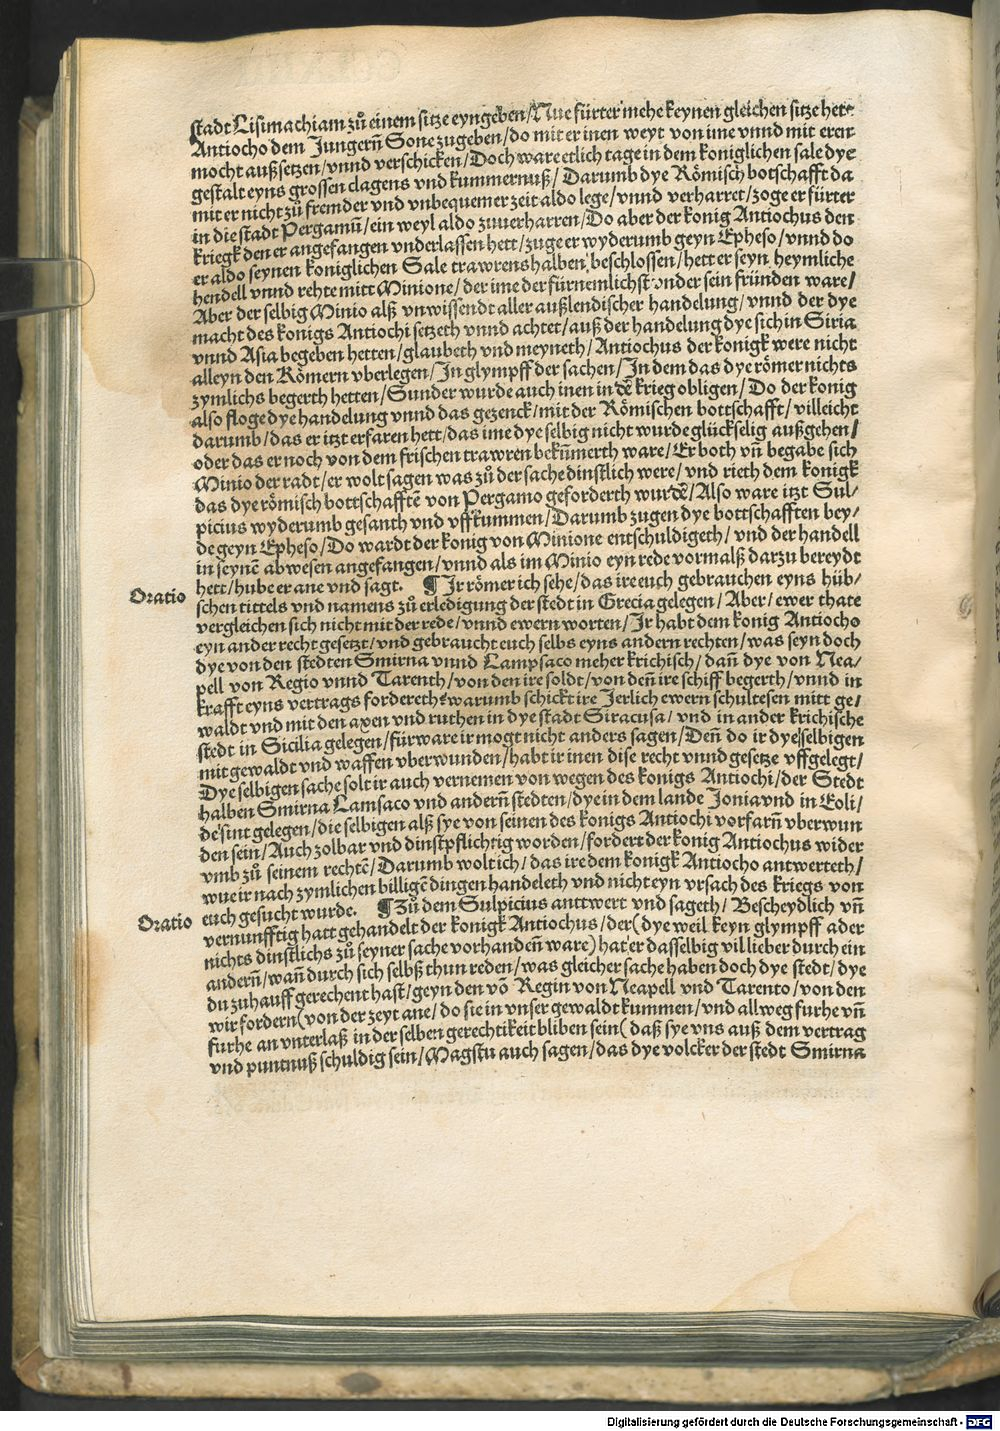 stadt Lisimachiam zů einem sitze eyngeben/Nue fürter mehe keynen gleichen sitze hett
Antiocho dem Jungern̄ Sone zugeben/do mit er inen weyt von ime vnnd mit eren
mocht außsetzen/vnnd verschicken/Doch ware etlich tage in dem koniglichen sale dye
gestalt eyns grossen clagens vnd kummernuß/Darumb dye Römisch botschafft da
mit er nicht zů fremder vnd vnbequemer zeit aldo lege/vnnd verharret/zoge er fürter
in die stadt Pergamū/ein weyl aldo zuuerharren/Do aber der konig Antiochus den
kriegk den er angefangen vnderlassen hett/zuge er wyderumb geyn Epheso/vnnd do
er aldo seynen koniglichen Sale trawrens halben beschlossen/hett er seyn heymliche
hendell vnnd rehte mitt Minione/der ime der fürnemlichst vnder sein fründen ware/
Aber der selbig Minio alß vnwissendt aller außlendischer handelung/vnnd der dye
macht des konigs Antiochi setzeth vnnd achtet/auß der handelung dye sich in Siria
vnnd Asia begeben hetten/glaubeth vnd meyneth/Antiochus der konigk were nicht
alleyn den Römern vberlegen/In glympff der sachen/In dem das dye römer nichts
zymlichs begerth hetten/Sunder wurde auch inen in dē krieg obligen/Do der konig
also floge dye handelung vnnd das gezenck/mit der Römischen bottschafft/villeicht
darumb/das er itzt erfaren hett/das ime dye selbig nicht wurde glückselig außgehen/
oder das er noch von dem frischen trawren bekūmerth ware/Er both vn̄ begabe sich
Minio der radt/er wolt sagen was zů der sache dinstlich were/vnd rieth dem konigk
das dye römisch bottschafftē von Pergamo geforderth wurdē/Also ware itzt Sul/
picius wyderumb gesanth vnd vffkummen/Darumb zugen dye bottschafften bey/
de geyn Epheso/Do wardt der konig von Minione entschuldigeth/vnd der handell
in seynē abwesen angefangen/vnnd als im Minio eyn rede vormalß darzu bereydt
hett/hube er ane vnd sagt. ¶ Ir römer ich sehe/das ire euch gebrauchen eyns hüb/
Oratio
schen tittels vnd namens zů erledigung der stedt in Grecia gelegen/Aber/ewer thate
vergleichen sich nicht mit der rede/vnnd ewern worten/Ir habt dem konig Antiocho
eyn ander recht gesetzt/vnd gebraucht euch selbs eyns andern rechten/was seyn doch
dye von den stedten Smirna vnnd Lampsaco meher krichisch/dan̄ dye von Nea/
pell von Regio vnnd Tarenth/von den ire soldt/von den̄ ire schiff begerth/vnnd in
krafft eyns vertrags fordereth? warumb schickt ire Jerlich ewern schultesen mitt ge/
waldt vnd mit den axen vnd ruthen in dye stadt Siracusa/vnd in ander krichische
stedt in Sicilia gelegen/fürware ir mogt nicht anders sagen/Den̄ do ir dye selbigen
mit gewaldt vnd waffen vberwunden/habt ir inen dise recht vnnd gesetze vffgelegt/
Dye selbigen sache solt ir auch vernemen von wegen des konigs Antiochi/der Stedt
halben Smirna Lamsaco vnd andern̄ stedten/dye in dem lande Jonia vnd in Eoli/
de sint gelegen/die selbigen alß sye von seinen des konigs Antiochi vorfarn̄ vberwun
den sein/Auch zolbar vnd dinstpflichtig worden/fordert der konig Antiochus wider
vmb zů seinem rechtē/Darumb wolt ich/das ire dem konigk Antiocho antwerteth/
wue ir nach zymlichen billigē dingen handeleth vnd nicht eyn vrsach des kriegs von
euch gesucht wurde. ¶ Zů dem Sulpicius anttwert vnd sageth/Bescheydlich vn̄
Oratio
vernunfftig hatt gehandelt der konigk Antiochus/der(dye weil keyn glympff ader
nichts dinstlichs zů seyner sache vorhanden̄ ware)hat er dasselbig vil lieber durch ein
andern̄/wan̄ durch sich selbß thun reden/was gleicher sache haben doch dye stedt/dye
du zuhauff gerechent hast/geyn den vō Regin von Neapell vnd Tarento/von den
wir fordern(von der zeyt ane/do sie in vnser gewaldt kummen/vnd allweg furhe vn̄
furhe an vnterlaß in der selben gerechtikeit bliben sein(daß sye vns auß dem vertrag
vnd puntnuß schuldig sein/Magstu auch sagen/das dye volcker der stedt Smirna
Digitalisierung gefördert durch die Deutsche Forschungsgemeinschaft - DFG